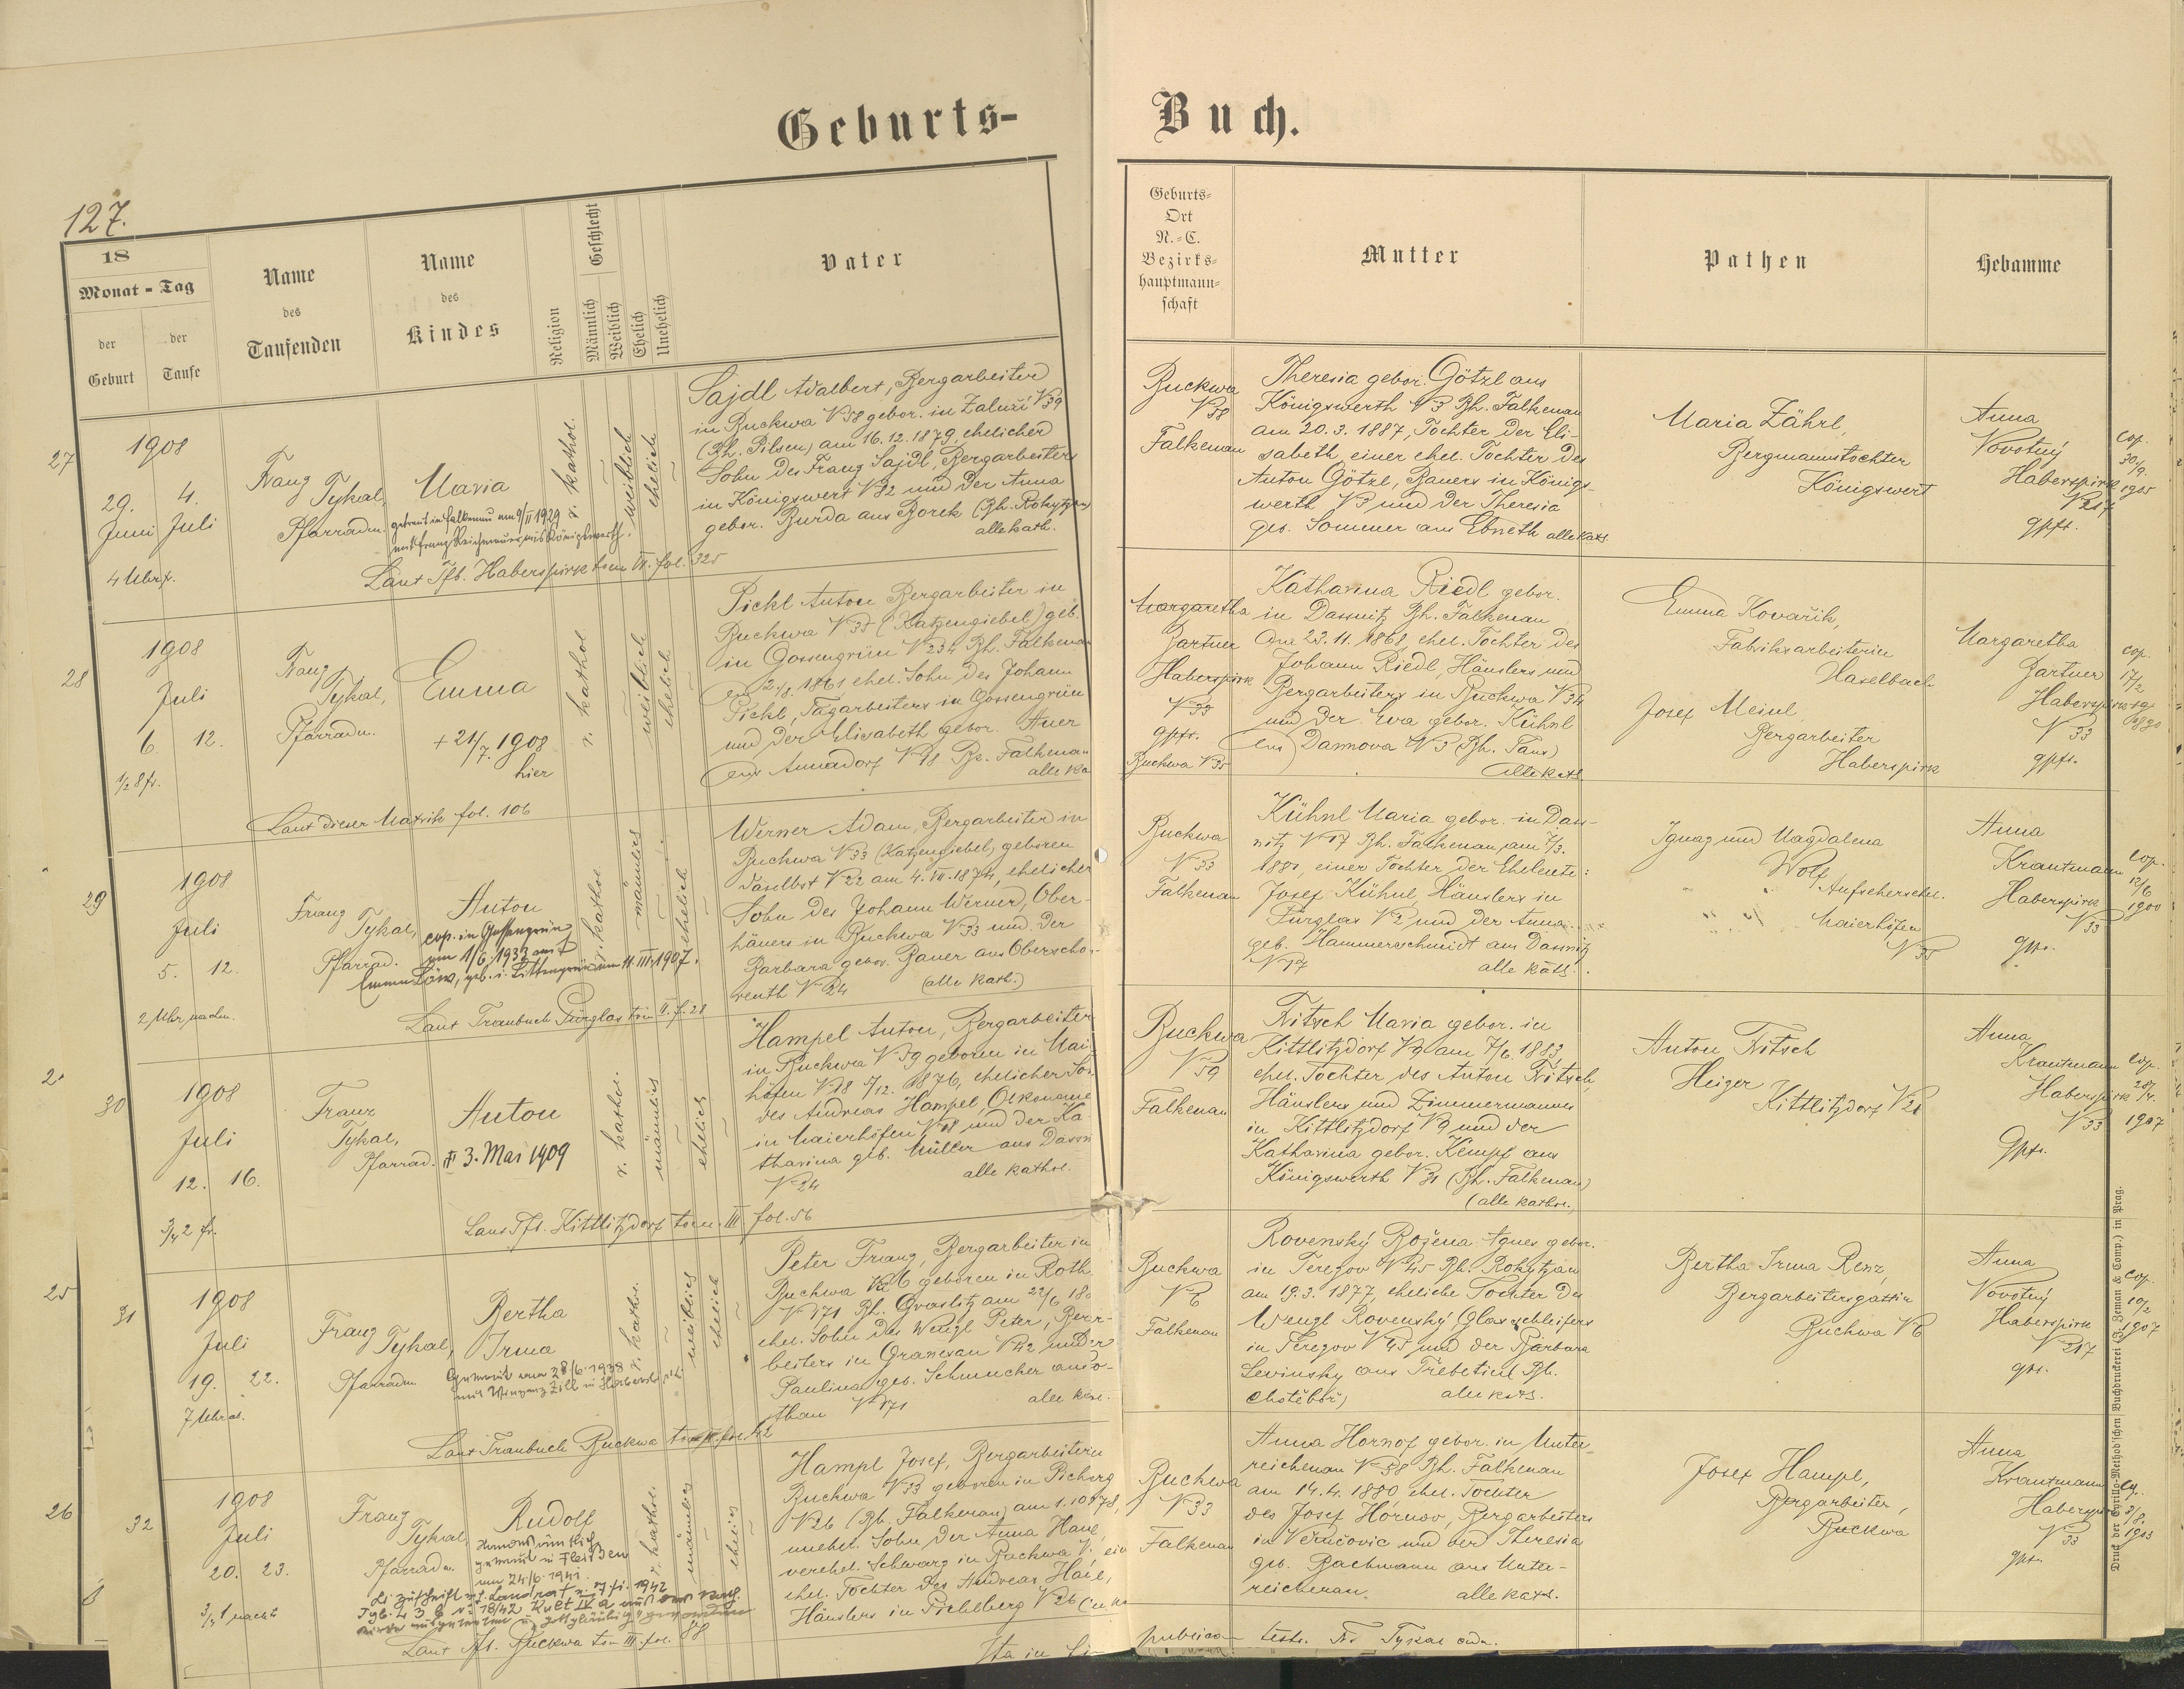 Geburts-
Buch.
127.
18
Monat - Tag
der Geburt
der Taufe
Name
des
Taufenden
Name
des
Kindes
Religion
Geschlecht
Männlich
Weiblich
Ehelich
Unehelich
Vater
Geburts-
Ort
N.-C.
Bezirks-
hauptmann-
schaft
Mutter
Pathen
Hebamme
27
1908
29. 4.
Juni Juli
4 Uhr f.
Franz
Tykal,
Pfarradm.
Maria
getraut in Falkenau am 9/II 1929
mit Franz Reichenauer aus Königswerth.
r. kathol.
weiblich
ehelich
Sajdl Adalbert, Bergarbeiter
in Buckwa N 58 gebor. in Zaluží N 39
(Bh. Pilsen) am 16.12.1879, ehelicher
Sohn des Franz Sajdl, Bergarbeiters
in Königswert N 32 und der Anna
gebor. Burda aus Borek (Bh. Rokytzan)
alle kath.
Laut Tfb. Haberspirk tom IX. fol. 325
Buckwa
N 58
Falkenau
Theresia gebor. Götzl aus
Königswerth N 3 Bh. Falkenau
am 20.3.1887, Tochter der Eli-
sabeth, einer ehel. Tochter des
Anton Götzl, Bauers in Königs-
werth N 3 und der Theresia
geb. Sommer aus Ebneth alle kath.
Maria Zährl,
Bergmannstochter
Königswert
Anna
Novotný
Haberspirk
N 217
gpft.
cop.
30/9.
1905
28
1908
Juli
6. 12.
1/2 8 fr.
Franz
Tykal,
Pfarradm.
Emma
+ 21/7. 1908
hier
r. kathol
weiblich
ehelich
Pickl Anton Bergarbeiter in
Buckwa N 35 (Katzengiebel) geb.
in Gossengrün N 234 Bh. Falkenau
am 2/8. 1861 ehel. Sohn des Johann
Pickl, Tagarbeiters in Gossengrün
und der Elisabeth gebor. Auer
aus Annadorf N 18 Bz. Falkenau
alle ka
Laut dieser Matrik fol. 106
Margaretha
Gartner
Haberspirk
N 33
gpft.
Buckwa N 35
Katharina Riedl gebor.
in Dassnitz Bh. Falkenau
am 23.11.1868, ehel. Tochter des
Johann Riedl, Häuslers und
Bergarbeiters in Buckwa N 34
und der Eva gebor. Kühnl
aus Damova N 3 (Bh. Taus)
alle kath
Emma Kovařik,
Fabriksarbeiterin
Haselbach
Josef Meinl
Bergarbeiter
Haberspirk
Margaretha
Gartner
Haberspirk
N 33
gpft.
cop.
17/2
1890
29
1908
Juli
5. 12.
2 Uhr nachm.
Franz
Tykal,
Pfarrad.
Anton
cop. in Gossengrün
am 1/6. 1933 mit
Emma Löw, geb. i. Littengrün am 11.III.1907.
r. kathol
männlich
ehelich
Werner Adam, Bergarbeiter in
Buckwa N 33 (Katzengiebel) geboren
daselbst N 22 am 4.VII.1874, ehelicher
Sohn des Johann Werner, Ober-
häuers in Buckwa N 33 und der
Barbara gebor. Bauer aus Oberscho-
renth N 24 (alle kath.)
Laut Traubuch Pürglas tom II. f. 28
Buckwa
N 33
Falkenau
Kühnl Maria gebor. in Dass-
nitz N 17 Bh. Falkenau am 7/3.
1880, einer Tochter der Eheleute:
Josef Kühnl, Häuslers in
Pürglas N 2 und der Anna
geb. Hammerschmidt aus Dassnitz
N 17 alle kath.
Ignaz und Magdalena
Wolf
Aufsehersehel.
Maierhöfen
N 35
Anna
Krautmann
Haberspirk
N 33
gpr.
cop.
12/6
1900
30
1908
Juli
12. 16.
3/4 2 fr.
Franz
Tykal,
Pfarrad.
Anton
+ 3. Mai 1909
r. kathol.
männlich
ehelich
Hampel Anton, Bergarbeiter
in Buckwa N 59 geboren in Mai-
höfen N 18 5/12. 1876, ehelicher So-
des Andreas Hampel, Oekonome
in Maierhöfen N 18 und der Ka-
tharina geb. Müller aus Dassn
N 24 alle kathol.
Laut Tfb. Kittlitzdorf tom. III fol. 56
Buckwa
N 59
Falkenau
Fritsch Maria gebor. in
Kittlitzdorf N 9 am 7/6. 1883,
ehel. Tochter des Anton Fritsch,
Häuslers und Zimmermannes
in Kittlitzdorf N 9 und der
Katharina gebor. Kempf aus
Königswerth N 31 (Bh. Falkenau)
(alle kathol.)
Anton Fritsch
Heizer
Kittlitzdorf N 21
Anna
Krautmann
Haberspirk
N 33
Gpft.
cop.
28/4.
1907
25
31
1908
Juli
19. 22.
7 Uhr ab.
Franz
Tykal,
Pfarradm
Bertha
Irma
Getraut am 28/6. 1938
r. kathol.
weiblich
ehelich
Peter Franz, Bergarbeiter in
Buckwa N 6 geboren in Roth
N 171 Bh. Graslitz am 22/6 18
ehel. Sohn des Wenzl Peter, Bergr-
beiters in Granesau N 42 und der
Paulina geb. Schmucher aus o-
thau N 171 alle kath.
Laut Traubuch Buckwa tom III fol. 42
Buckwa
N 6
Falkenau
Rovenský Božena Agnes gebor.
in Terezov N 45 Bh. Rokytzan
am 19.3.1877, eheliche Tochter des
Wenzl Rovenský Glasschleifers
in Terezov N 45 und der Barbara
Levinsky aus Třebetind Bh.
Chotěboř) alle kath.
Bertha Irma Renz,
Bergarbeitersgattin
Buckwa N 6
Anna
Novotný
Haberspirk
N 217
gpr.
cop.
10/2
1907
26
32
1908
Juli
20. 23.
3/4 1 nachts
Franz
Tykal
Pfarradm.
Rudolf
getraut in Fleißen
am 24/6. 1941.
r. kathol.
männlich
ehelich
Hampl Josef, Bergarbeiter in
Buckwa N 33 geboren in Pichlbrg
N 26 (Bh. Falkenau) am 1.10.1878,
unehel. Sohn der Anna Haue,
verehel. Schwarz in Buckwa N. ein
ehel. Tochter des Andreas Haie,
Häuslers in Pichlberg N 26
Laut Tfb. Buckwa tom III. fol. 88
Buckwa
N 33
Falkenau
Anna Hornof gebor. in Unter-
reichenau N 58 Bh. Falkenau
am 14.4.1880 ehel. Tochter
des Josef Hornov, Bergarbeiters
in Večučovic und der Theresia
geb. Bachmann aus Unter-
reichenau. alle kath.
Josef Hampl,
Bergarbeiter,
Buckwa
Anna
Krautmann
Haberspirk
N 33
gpr.
cop.
3/8.
1903
Ita in
publico testr. Fr Tykal adm.
Druck der Cyrillo-Method'schen Buchdruckerei (G. Zeman & Comp.) in Prag.